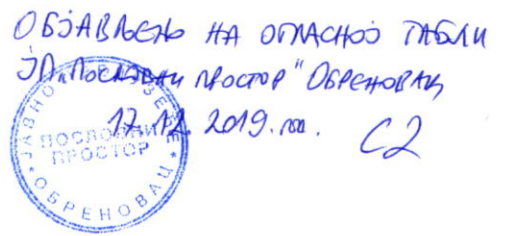 ОБЈАВЉЕНО НА ОГЛАСНОЈ ТАБЛИ
ЈП „ПОСЛОВНИ ПРОСТОР" ОБРЕНОВАЦ
17.12. 2019. год.
ЈАВНО ПРЕДУЗЕЋЕ
ПОСЛОВНИ
ПРОСТОР
* ОБРЕНОВАЦ *